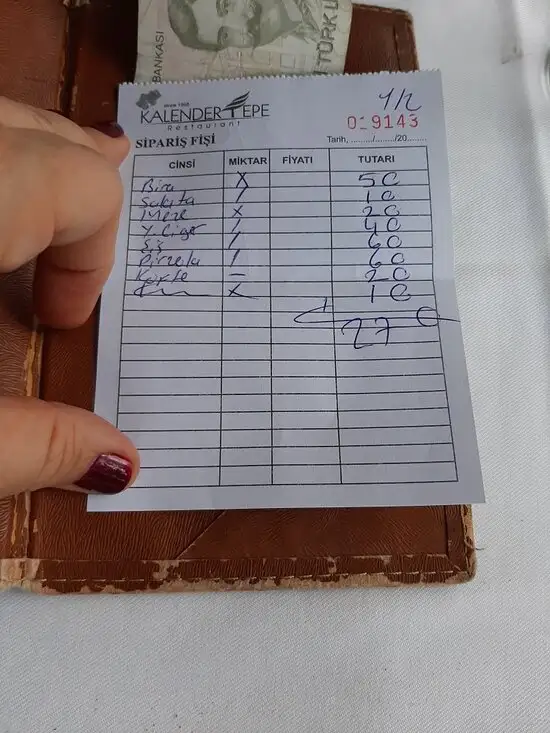 BANKASI
TÜRK
since 1968
KALENDERTEPE
Restaurant
1/2
019143
SİPARİŞ FİŞİ
Tarih, ......../......../20........
CİNSİ MİKTAR FİYATI TUTARI
Bira X 50
/ 10
Meze X 20
Y. Ciğer / 40
Şiş / 60
Pirzola / 60
Köfte – 20
X 10
270